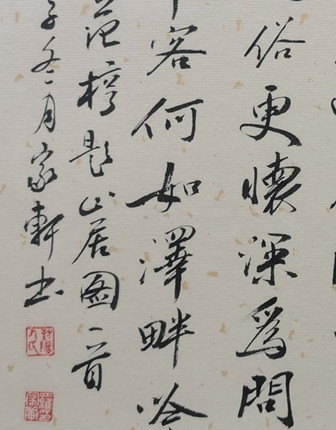 俗更懷深為問
客何如澤畔吟
范梈題山居圖一首
子冬月家軒书